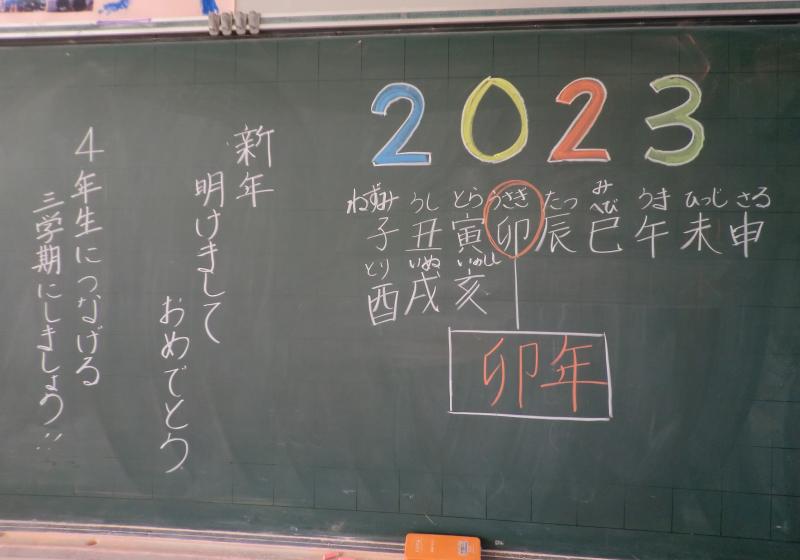 2023
ねずみ うし とら うさぎ たつ み へび うま ひつじ さる
子 丑 寅 卯 辰 巳 午 未 申
とり いぬ いのしし
酉 戌 亥
卯年
新年
明けまして
おめでとう
4年生につなげる
三学期にしましょう!!